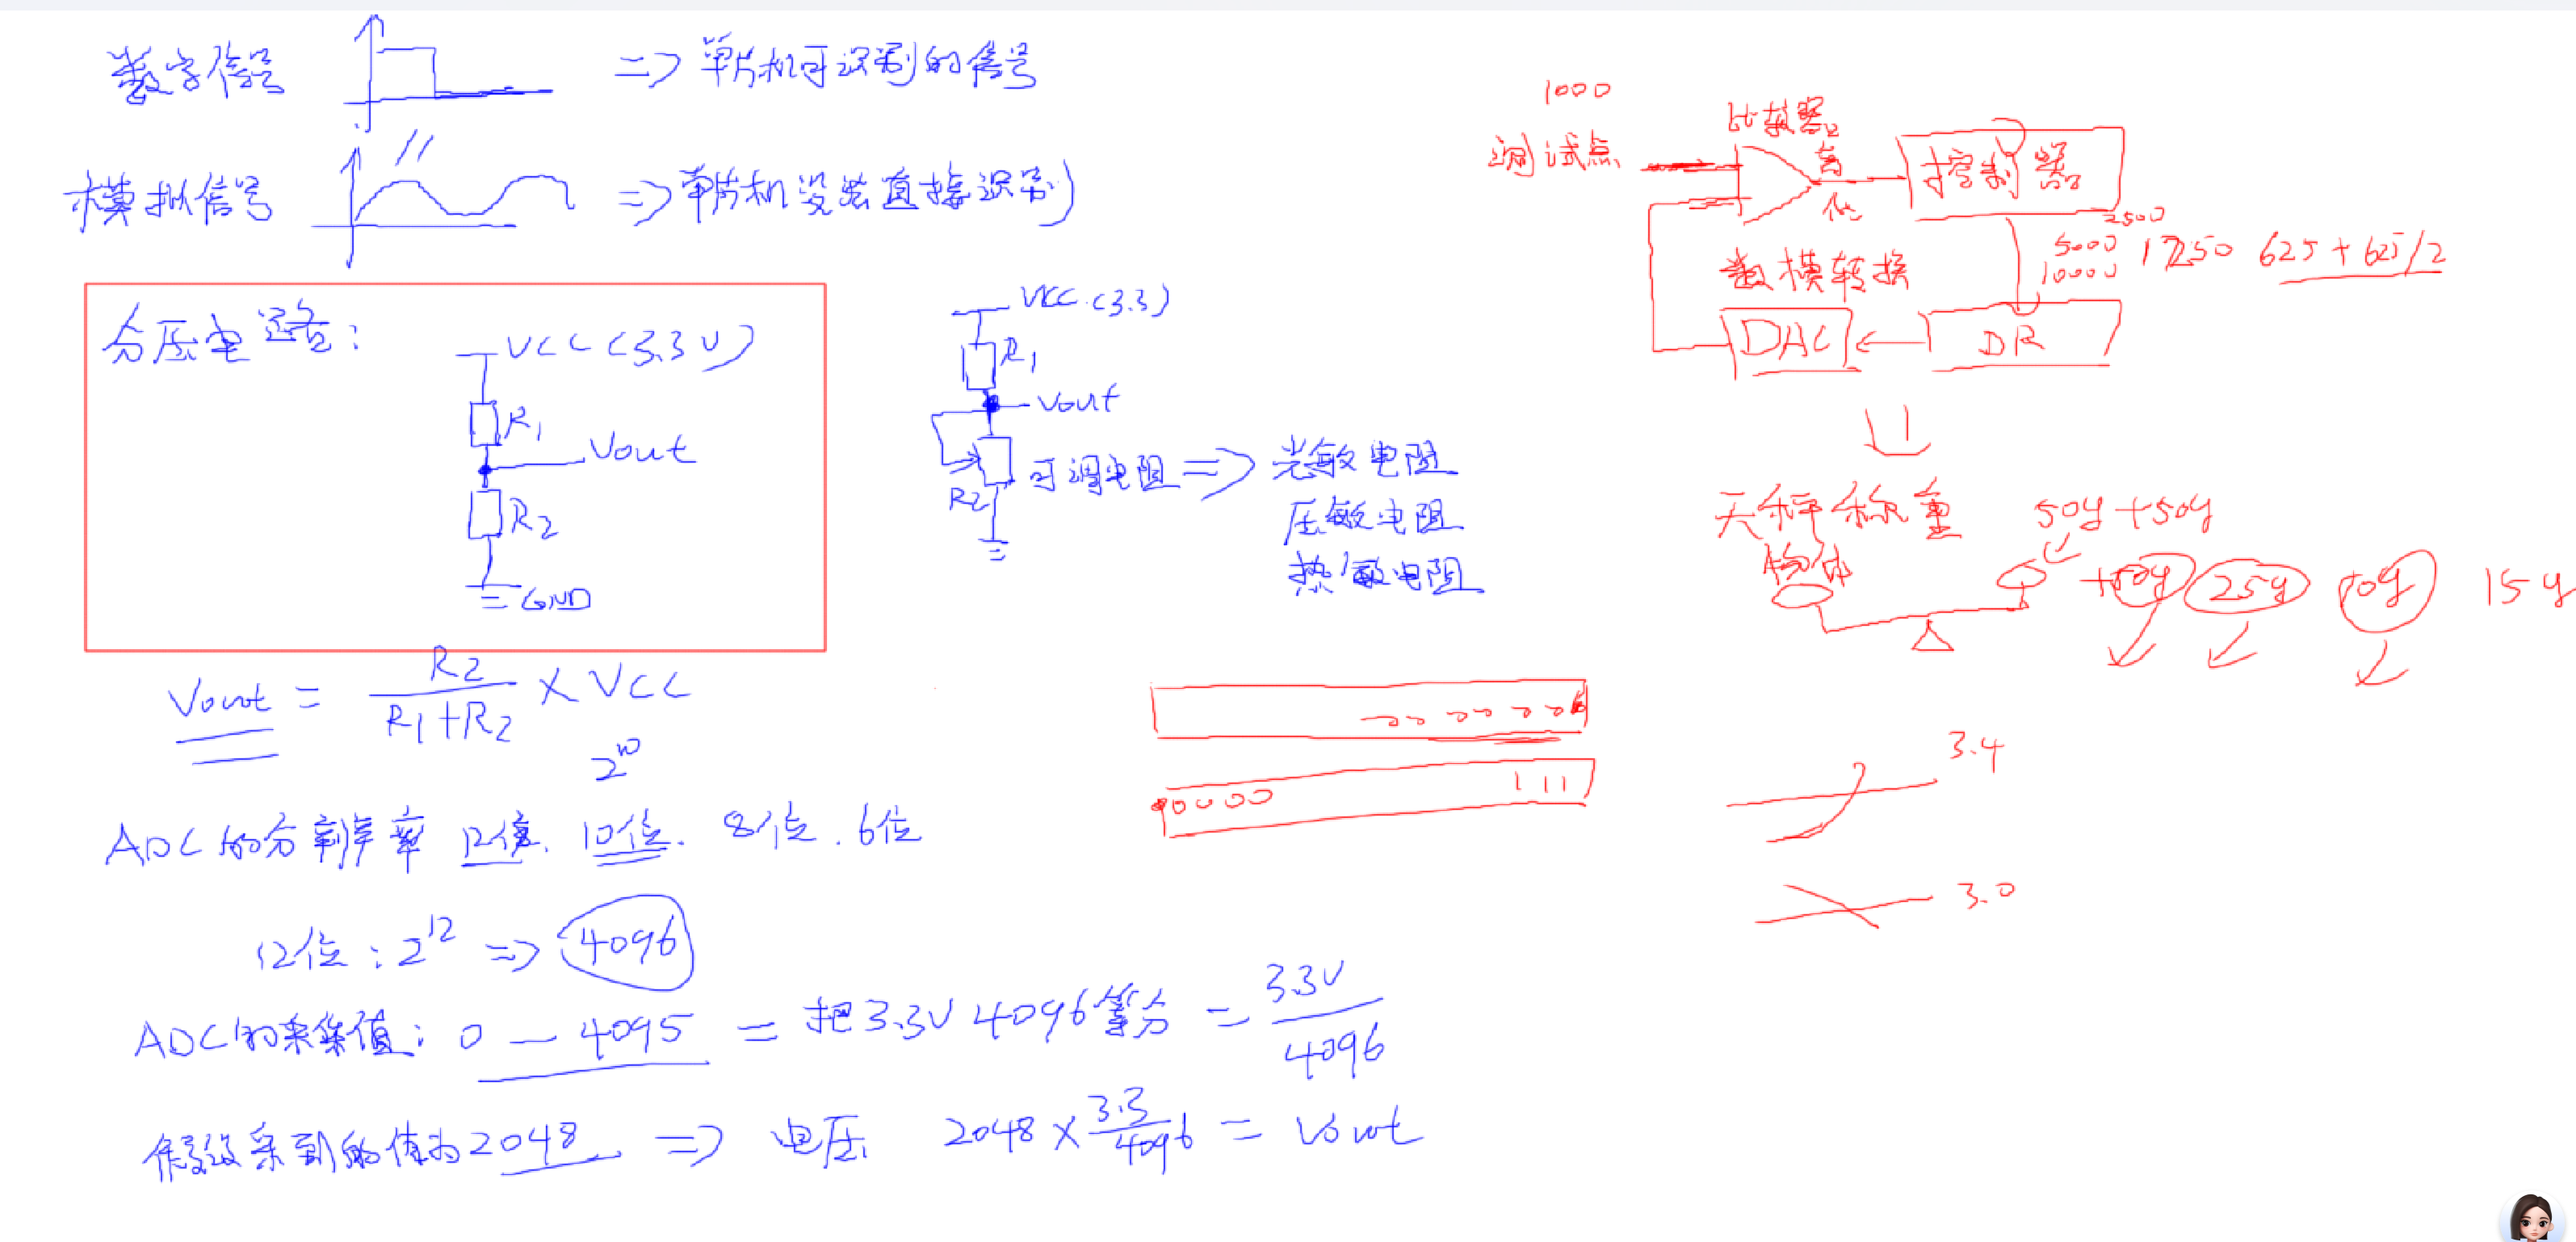 数字信号 => 单片机可识别的信号
模拟信号 => 单片机没法直接识别
分压电路:
VCC (3.3V)
R1
Vout
R2
GND
VCC (3.3)
R1
Vout
R2
可调电阻 => 光敏电阻
压敏电阻
热敏电阻
Vout = R2 / (R1+R2) × VCC
2^10
ADC的分辨率 12位、10位、8位、6位
12位: 2^12 => 4096
ADC的采集值: 0 — 4095 = 把3.3V 4096等分 = 3.3V / 4096
假设采到的值为2048 => 电压 2048 × 3.3/4096 = Vout
1000
测试点
比较器
高
低
控制器
2500
5000
10000
1250 625 + 625/2
数模转换
DAC
DR
天秤称重
物体
50g+50g
25g
10g
15g
111
3.4
3.0